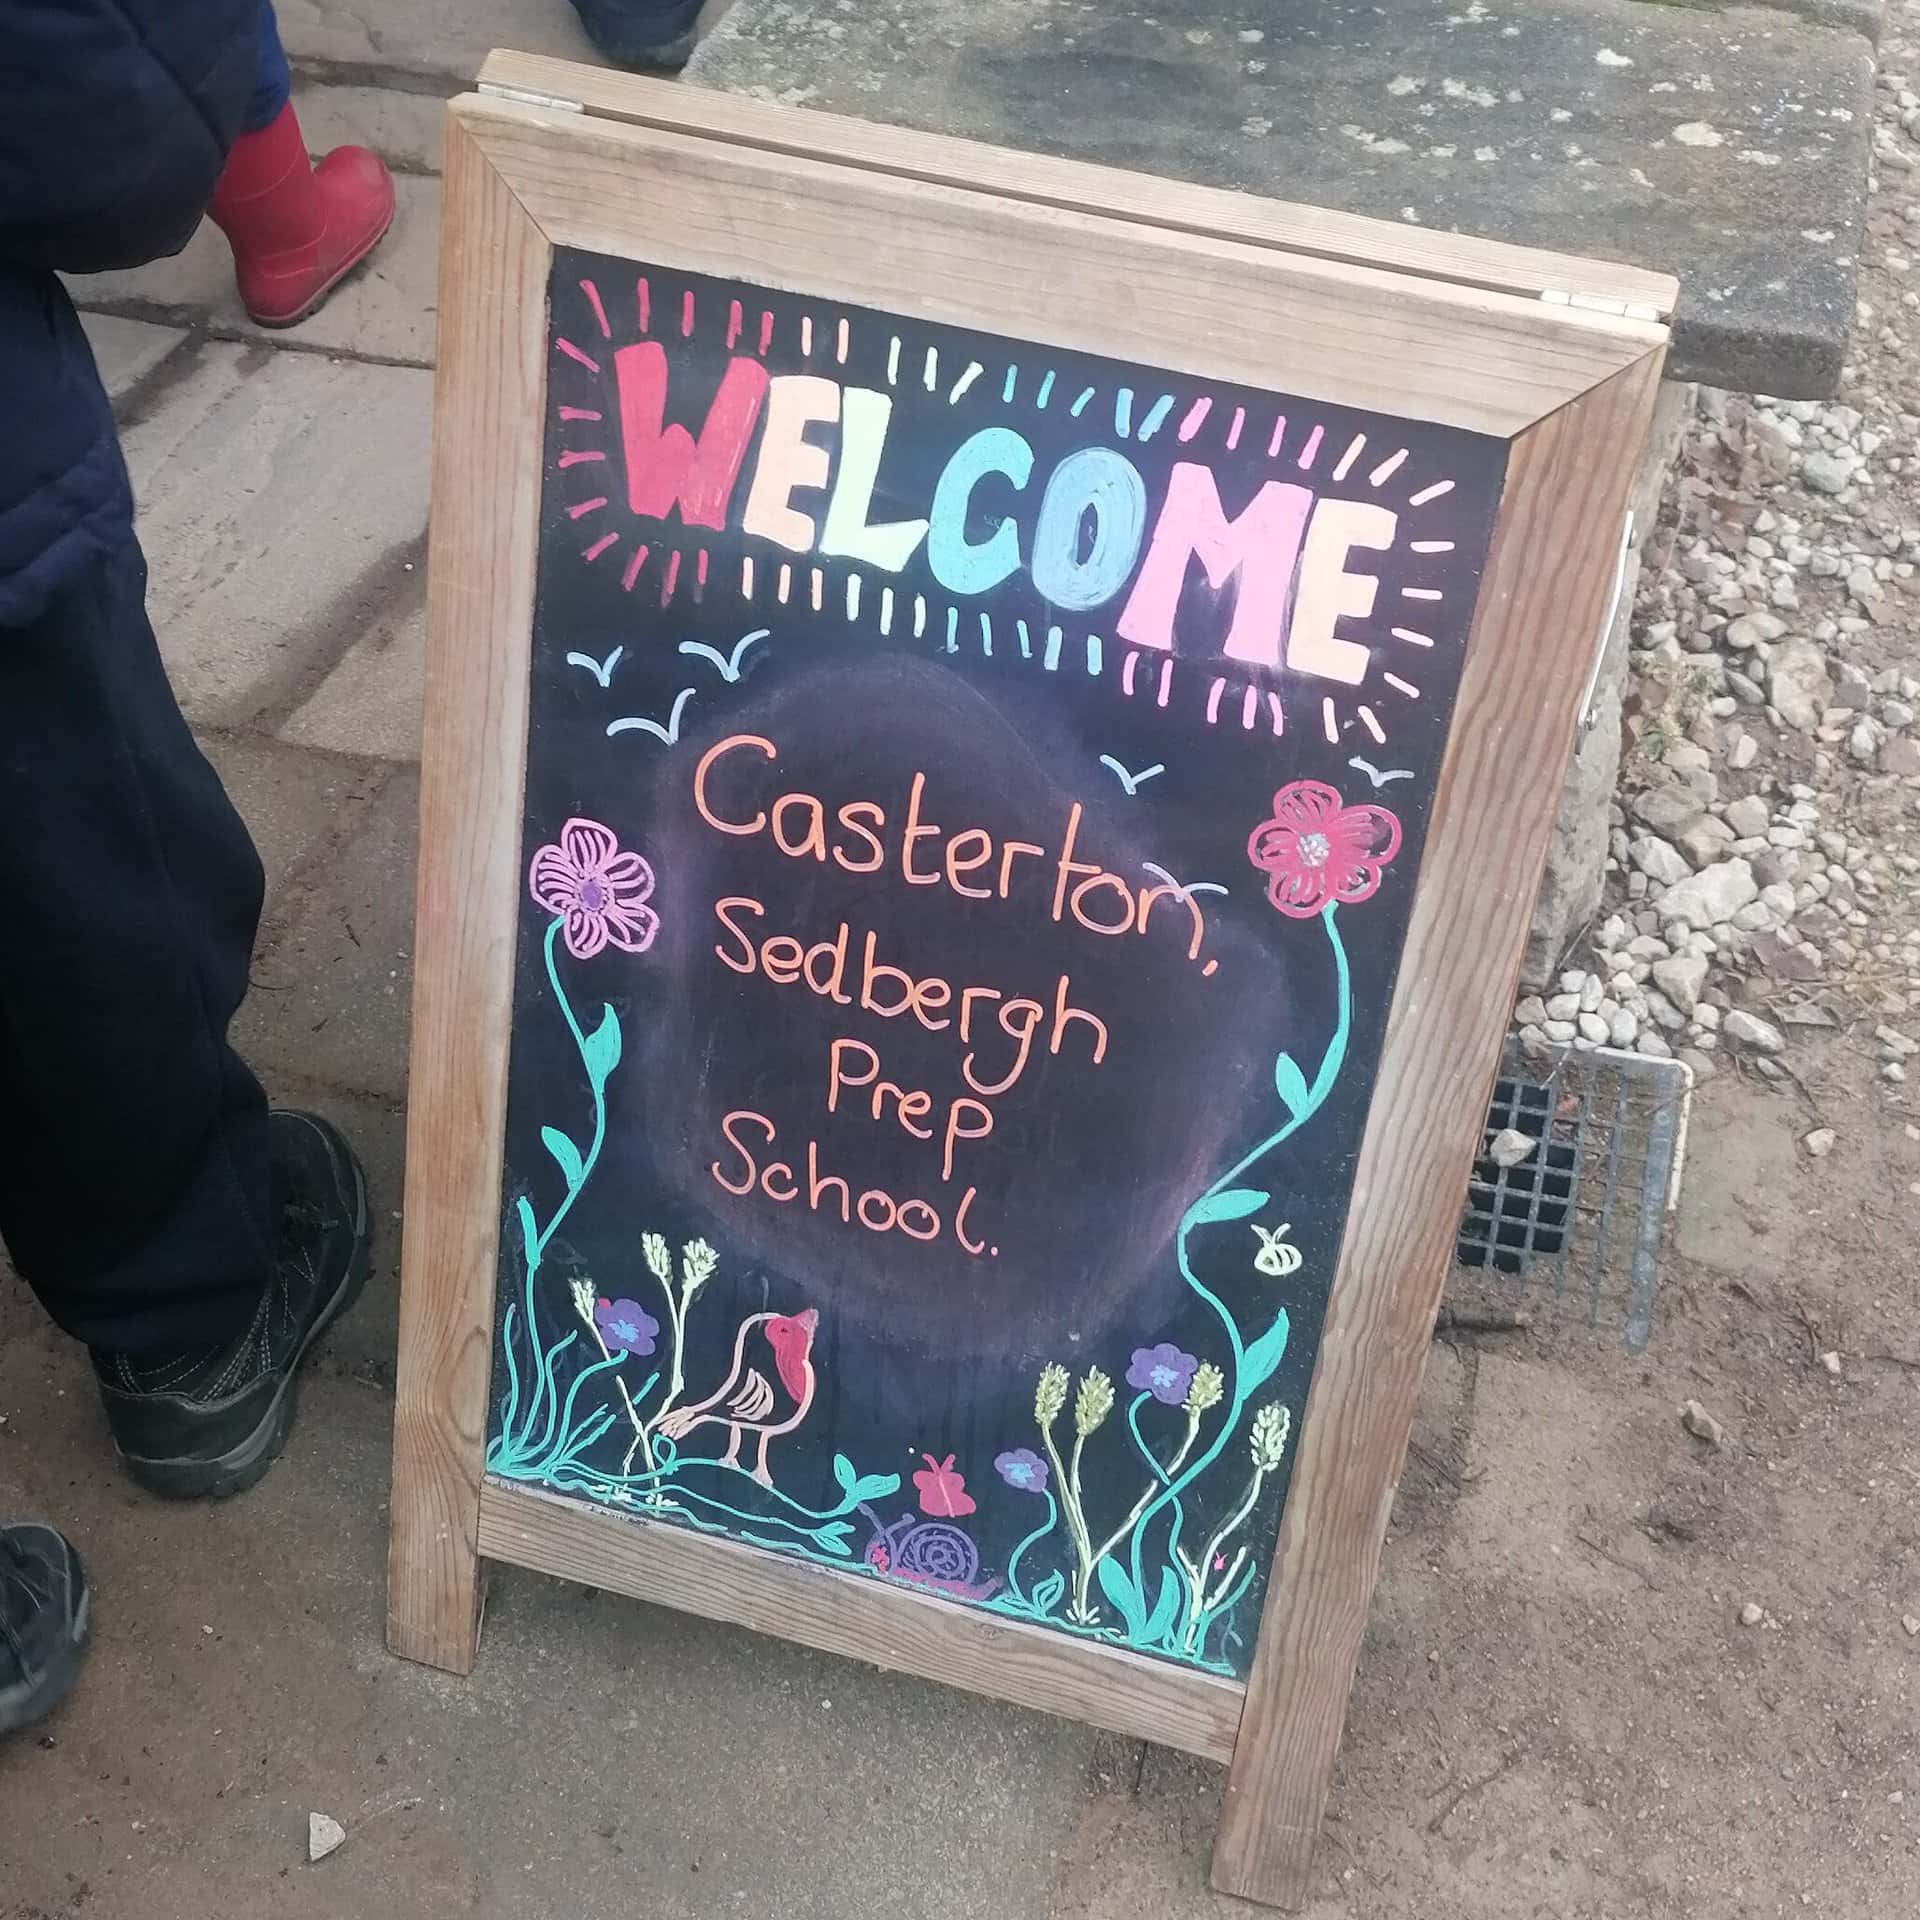 WELCOME
Casterton,
Sedbergh
Prep
School.